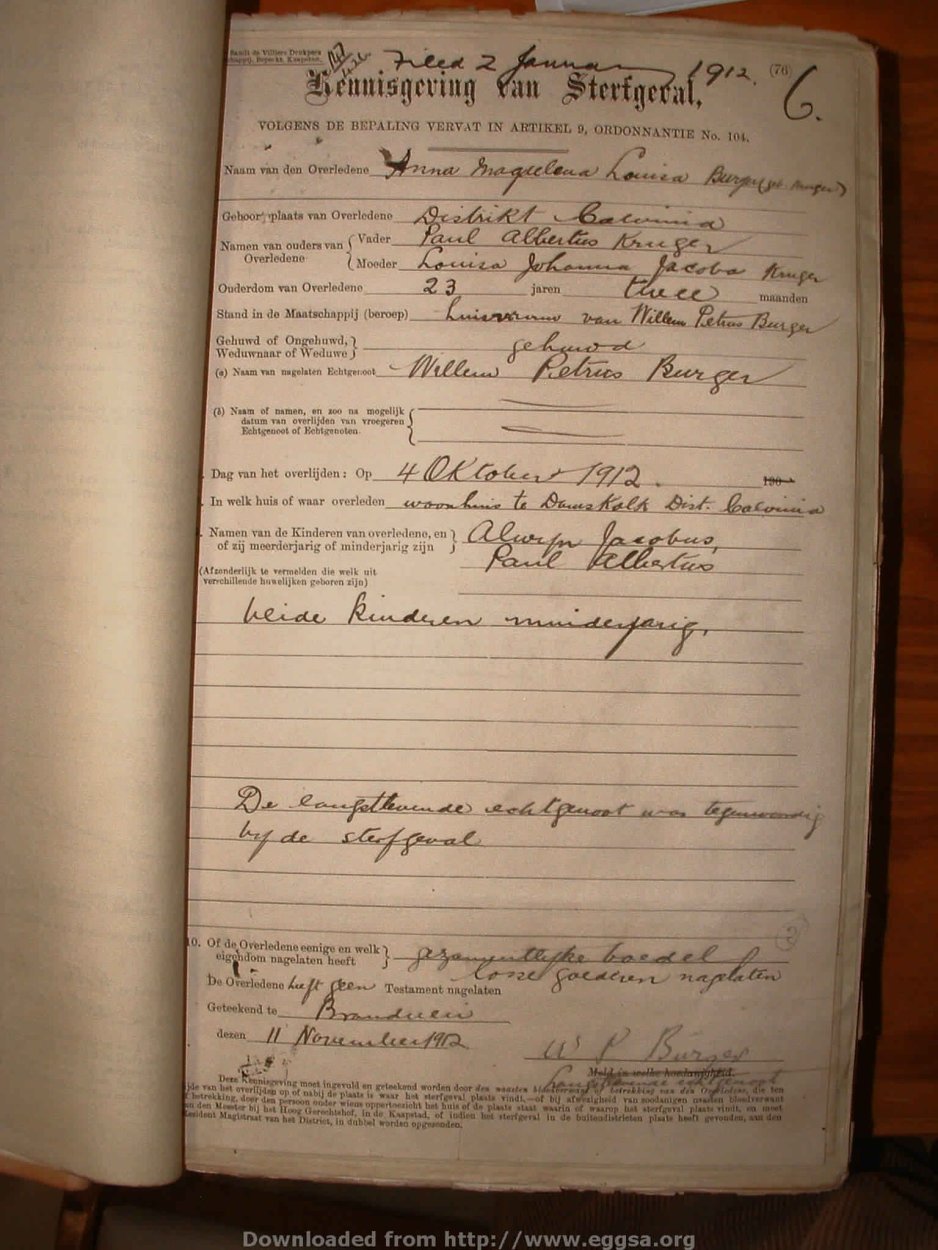 Filed 2 Januar 1912. (76) 6.
Kennisgeving van Sterfgeval,
VOLGENS DE BEPALING VERVAT IN ARTIKEL 9, ORDONNANTIE No. 104.
Naam van den Overledene Anna Magdelena Louisa Burger (geb. Kruger)
Geboorteplaats van Overledene Distrikt Calvinia
Namen van ouders van Overledene { Vader Paul Albertus Kruger
{ Moeder Louisa Johanna Jacoba Kruger
Ouderdom van Overledene 23 jaren twee maanden
Stand in de Maatschappij (beroep) huisvrouw van Willem Petrus Burger
Gehuwd of Ongehuwd, Weduwnaar of Weduwe } gehuwd
(a) Naam van nagelaten Echtgenoot Willem Petrus Burger
(b) Naam of namen, en zoo na mogelijk
datum van overlijden van vroegeren
Echtgenoot of Echtgenoten
Dag van het overlijden: Op 4 Oktober 1912. 190
In welk huis of waar overleden woonhuis te Dist. Calvinia
Namen van de Kinderen van overledene, en } Alwyn Jacobus,
of zij meerderjarig of minderjarig zijn Paul Albertus
(Afzonderlijk te vermelden die welk uit
verschillende huwelijken geboren zijn)
beide kinderen minderjarig,
De langstlevende echtgenoot was tegenwoordig
by de sterfgeval
10. Of de Overledene eenige en welk } gezamentlyke boedel
eigendom nagelaten heeft losse goederen nagelaten
De Overledene heeft geen Testament nagelaten
Geteekend te Brandvlei
dezen 11 November 1912
W P Burger
Meld in welke hoedanigheid.
Langstlevende echtgenoot
Deze Kennisgeving moet ingevuld en geteekend worden door den naasten bloedverwant of betrekking van den Overledene, die ten
tijde van het overlijden op of nabij de plaats is waar het sterfgeval plaats vindt,—of bij afwezigheid van zoodanigen naasten bloedverwant
of betrekking, door den persoon onder wiens oppertoezicht het huis of de plaats staat waarin of waarop het sterfgeval plaats vindt, en moet
aan den Meester bij het Hoog Gerechtshof, in de Kaapstad, of indien het sterfgeval in de buitendistrieten plaats heeft gevonden, aan den
Resident Magistraat van het District, in dubbel worden opgezonden.
Downloaded from http://www.eggsa.org